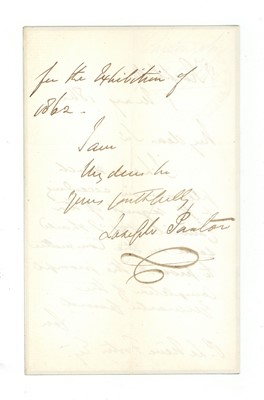 for the Exhibition of
1862 -
I am
My dear Sir
Yours faithfully
Joseph Paxton